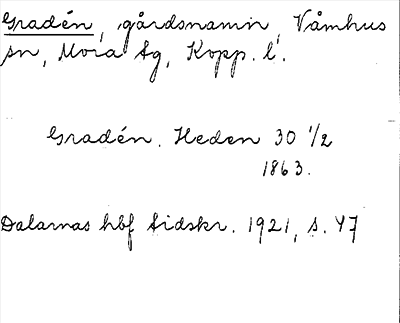 Gradén, gårdsnamn, Våmhus
sn, Mora tg, Kopp. l.
Gradén. Heden 30 1/2
1863.
Dalarnas hbf tidskr. 1921, s. 47